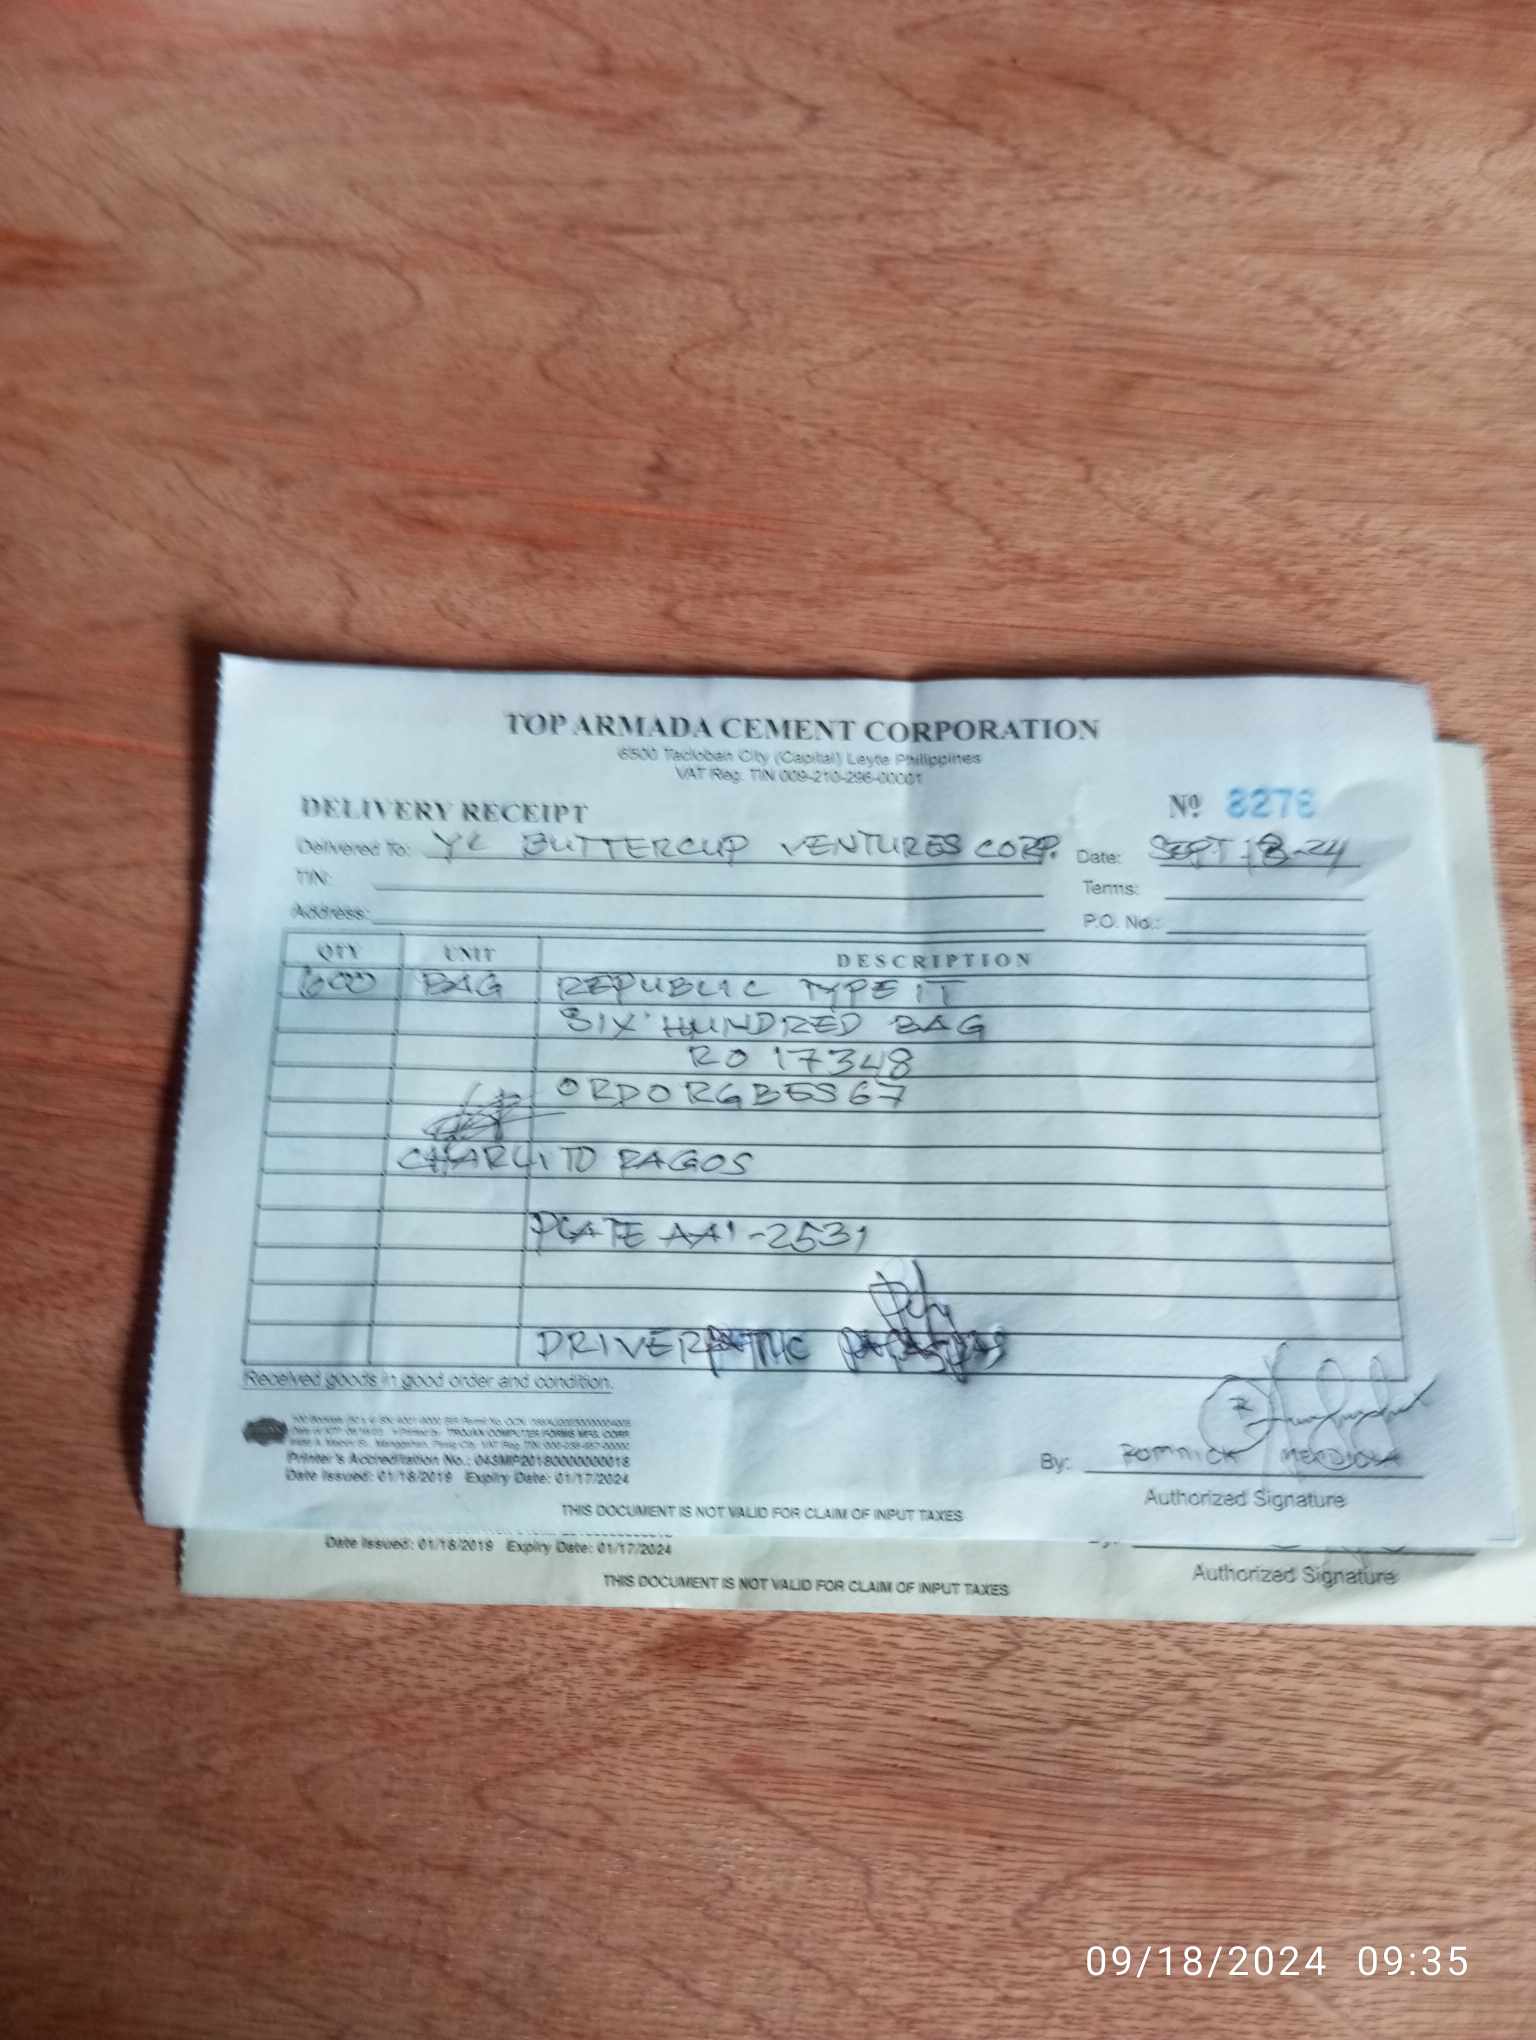 TOP ARMADA CEMENT CORPORATION
6500 Tacloban City (Capital) Leyte Philippines
VAT Reg. TIN 009-210-296-00001
DELIVERY RECEIPT Nº 8276
Delivered To: YK BUTTERCUP VENTURES CORP. Date: SEPT-18-24
TIN: Terms:
Address: P.O. No.:
QTY UNIT DESCRIPTION
600 BAG REPUBLIC TYPE IT
SIX HUNDRED BAG
RO 17348
ORDORGBES67
CHARLITO RAGOS
PLATE AAI-2531
DRIVER
Received goods in good order and condition.
TROJAN COMPUTER FORMS MFG. CORP.
Printer's Accreditation No.: 043MP20180000000018
Date Issued: 01/18/2019 Expiry Date: 01/17/2024
By: ROMNICK MENDIOLA
Authorized Signature
THIS DOCUMENT IS NOT VALID FOR CLAIM OF INPUT TAXES
Date Issued: 01/18/2019 Expiry Date: 01/17/2024
Authorized Signature
THIS DOCUMENT IS NOT VALID FOR CLAIM OF INPUT TAXES
09/18/2024 09:35